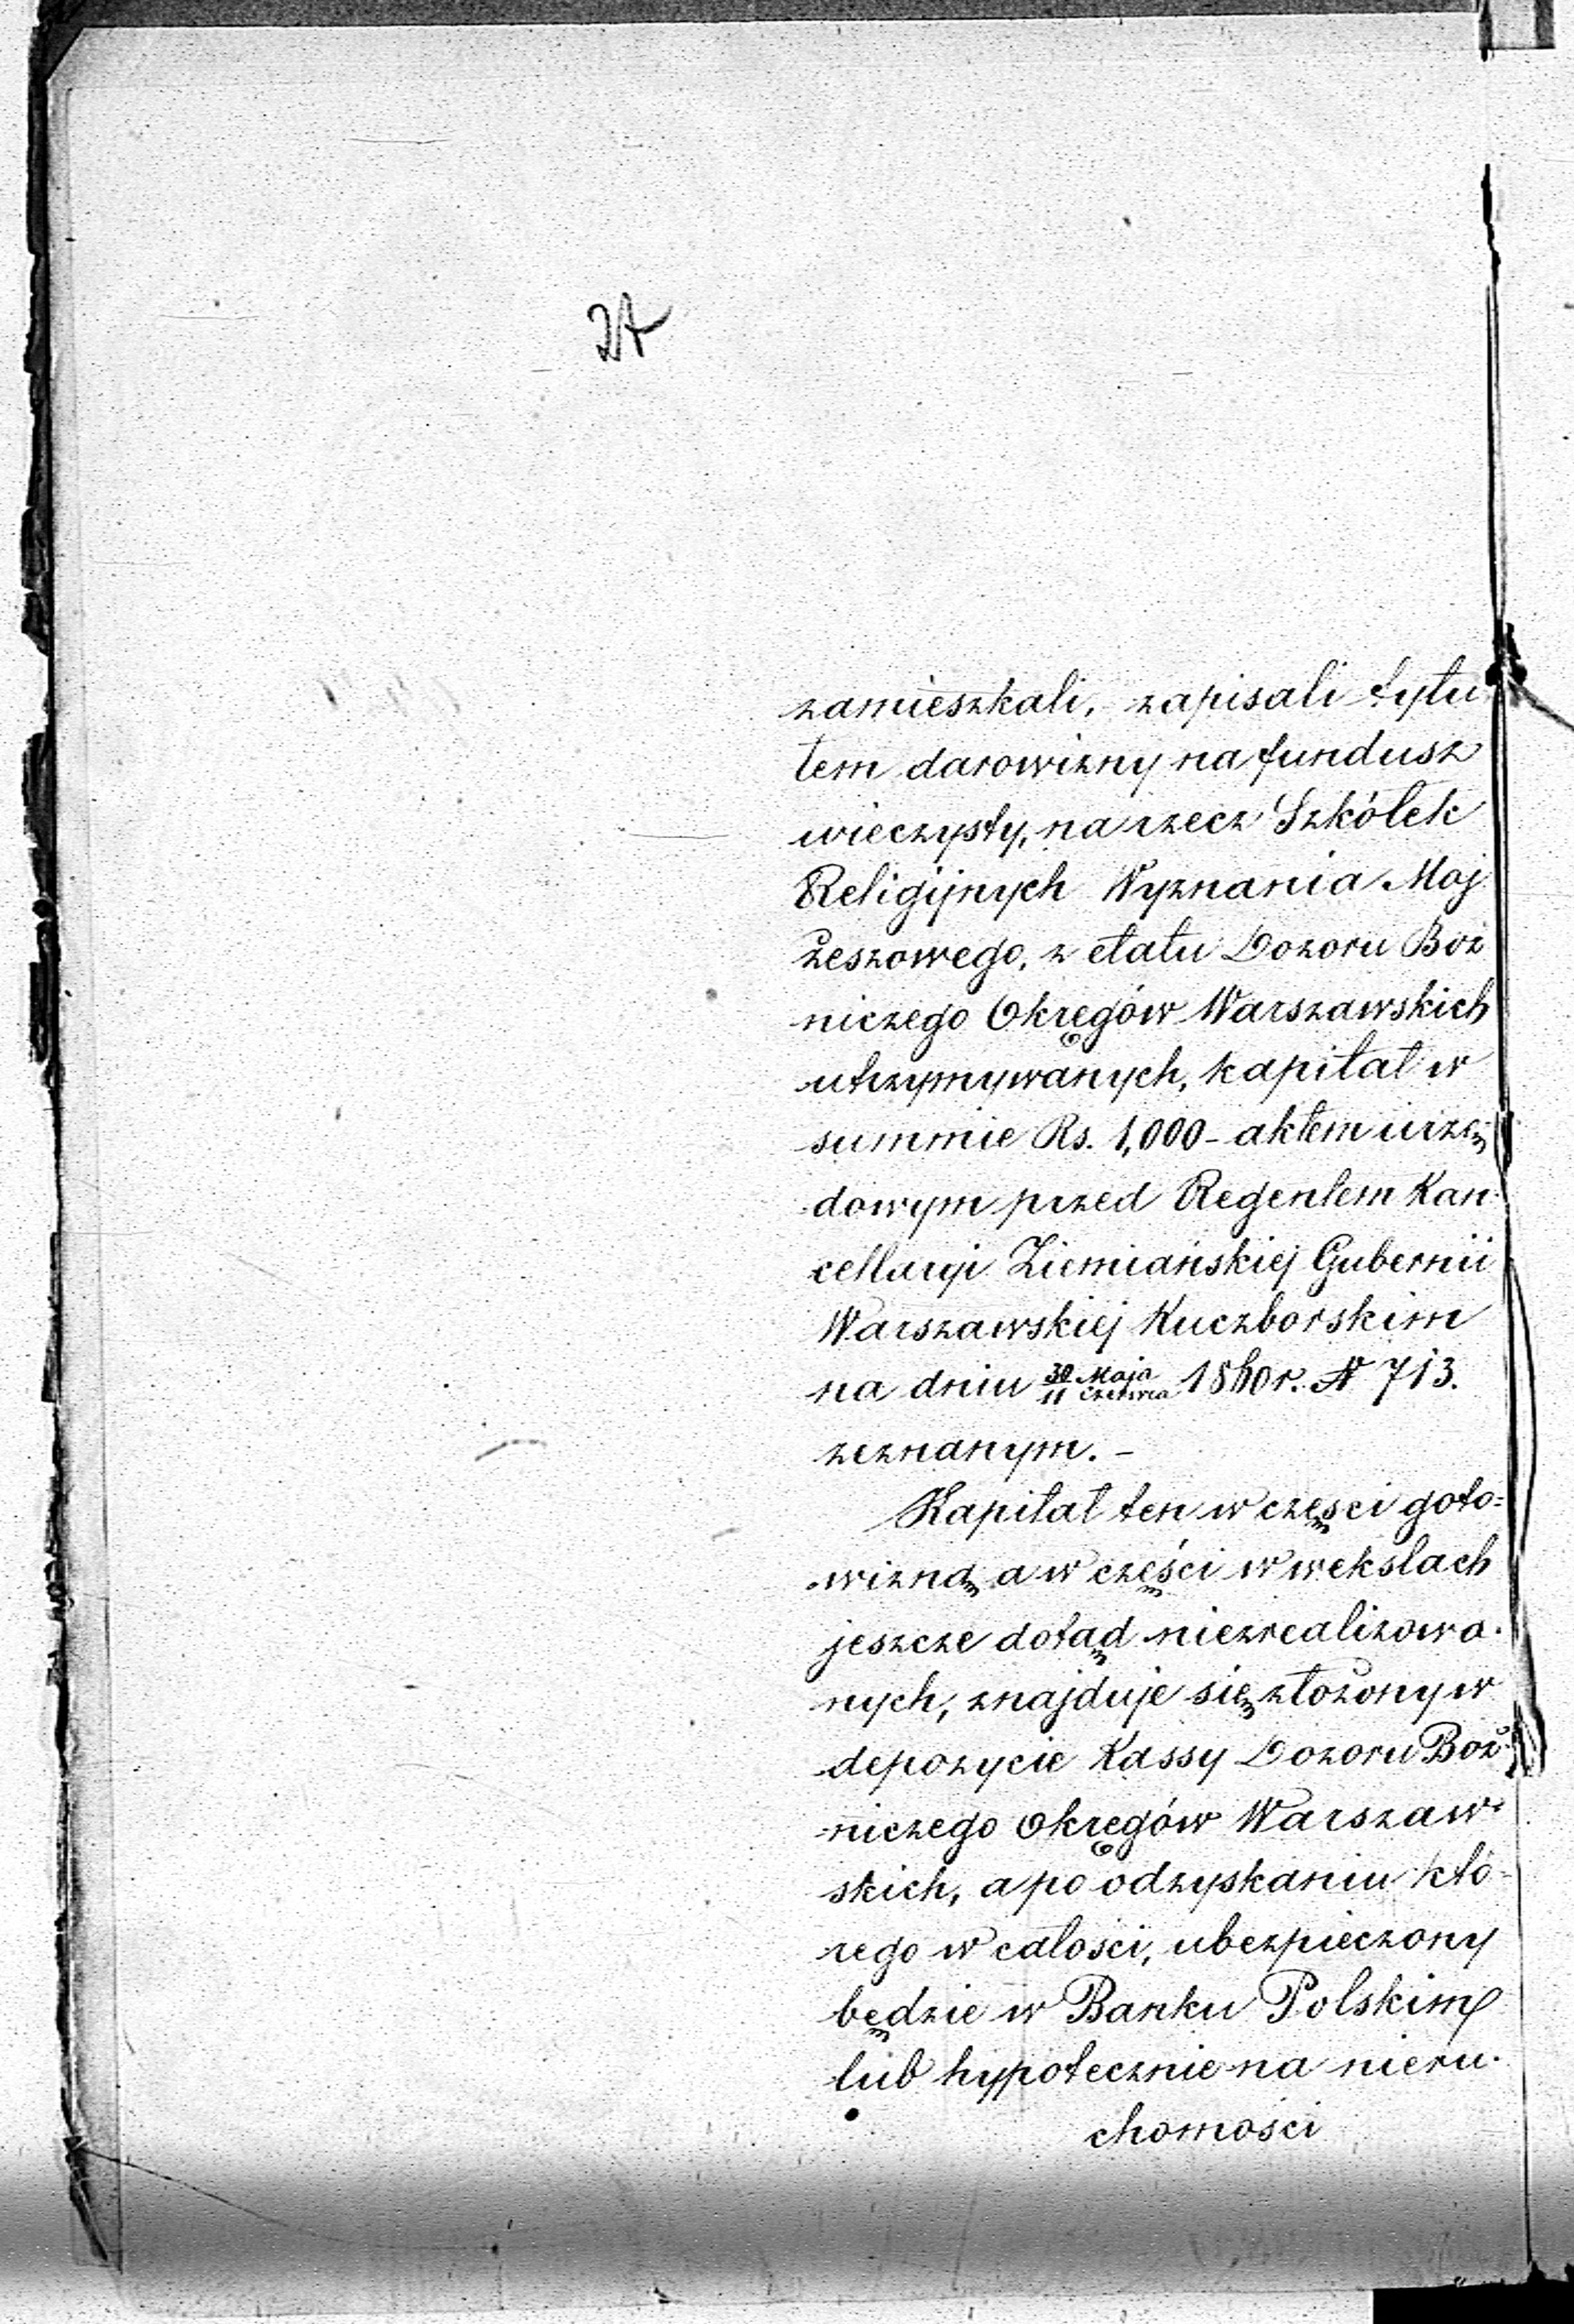 24
zamieszkali, zapisali tytu
łem darowizny na fundusz
wieczysty, na rzecz Szkółek
Religijnych Wyznania Moj
żeszowego, z etatu Dozoru Boż
niczego Okręgów Warszawskich
utrzymywanych, kapitał w
summie Rs. 1,000 - aktem urzę-
dowym przed Regentem Kan-
cellaryi Ziemiańskiej Gubernii
Warszawskiej Kuczborskim
na dniu 30 Maja / 11 Czerwca 1860 r. N 713.
zeznanym. -
Kapitał ten w częsci goto=
wizną a w części w wekslach
jeszcze dotąd niezrealizowa-
nych, znajduje się złożony w
depozycie Kassy Dozoru Boż-
niczego Okręgów Warszaw-
skich, a po odzyskaniu któ-
rego w całości, ubezpieczony
będzie w Banku Polskim
lub hypotecznie na nieru-
chomości